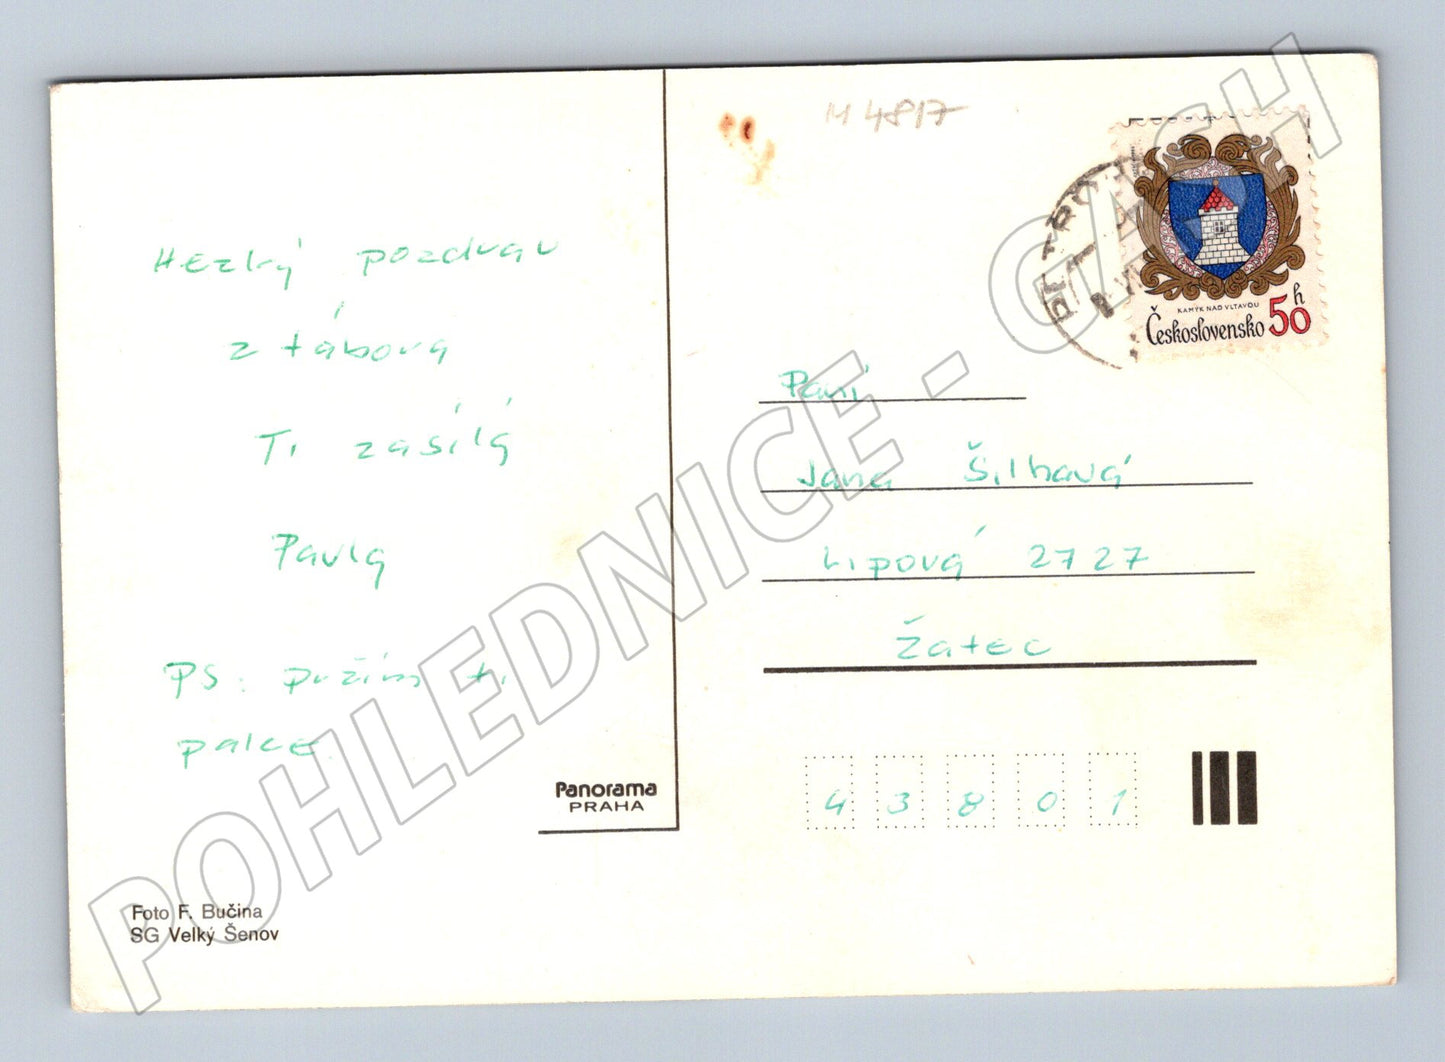 M 4817
Hezký pozdrav
z tábora
Ti zasílá
Pavla
PS: držím ti
palce
Panorama
PRAHA
Foto F. Bučina
SG Velký Šenov
KAMÝK NAD VLTAVOU
Československo 50 h
Paní
Jana Šilhavá
Lipová 2727
Žatec
43801
POHLEDNICE - GASH